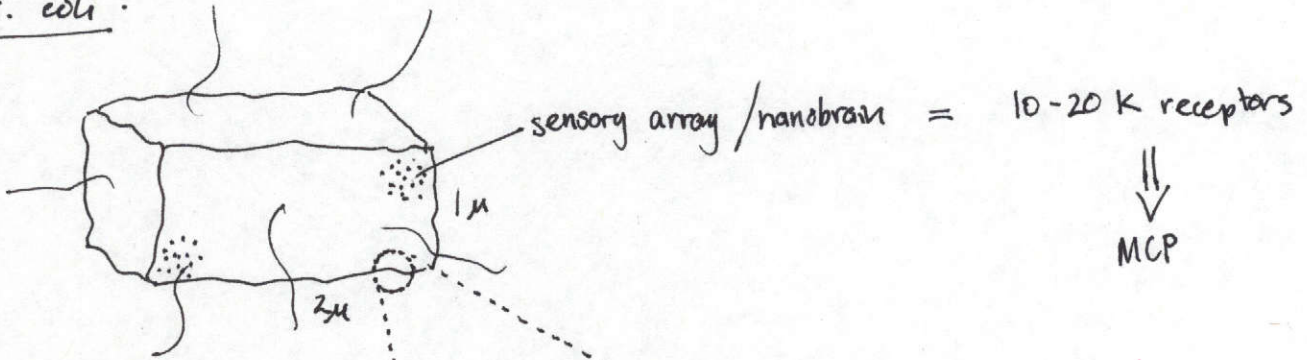 E. coli.
sensory array / nanobrain = 10-20 K receptors
MCP
1μ
3μ